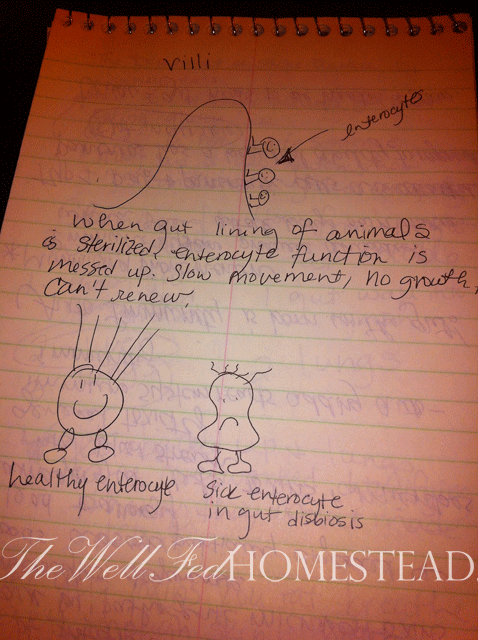 villi
enterocytes
when gut lining of animals
is sterilized, enterocyte function is
messed up. Slow movement, no growth,
Can't renew.
healthy enterocyte
Sick enterocyte
in gut disbiosis
The Well Fed HOMESTEAD.